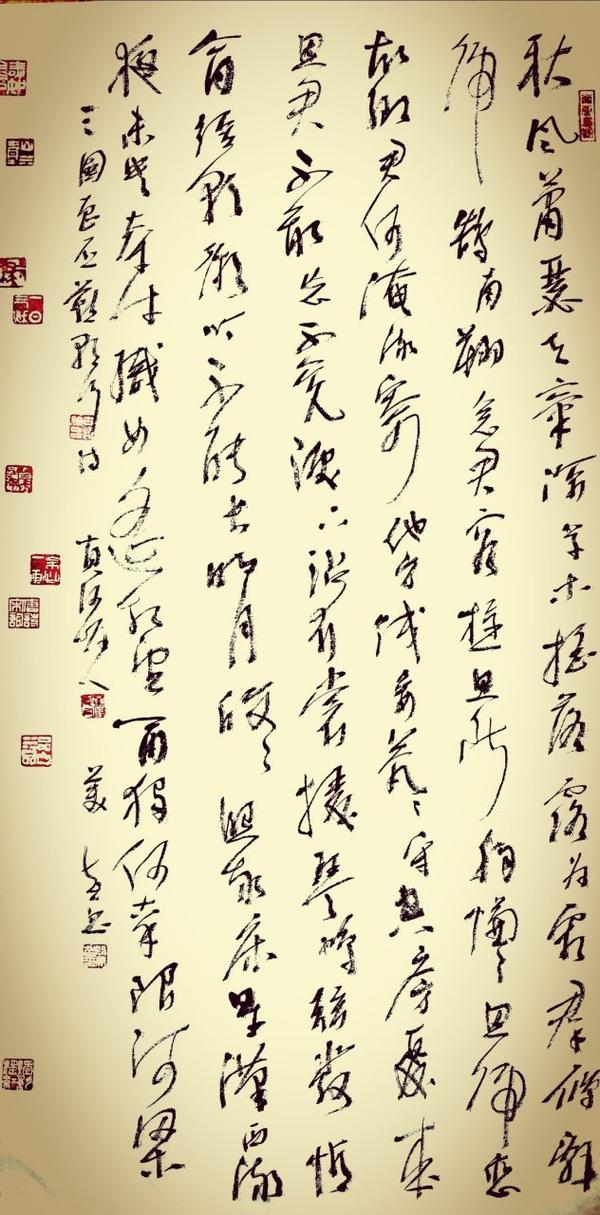 秋風蕭瑟天氣涼草木搖落露為霜群雁辭
歸鵠南翔念君客遊思斷腸慊々思歸戀
故鄉君何淹流寄他方賤妾茕々守空房憂來
思君不敢忘不覺淚下沾衣裳援琴鳴絃發清
商短歌微吟不能長明月皎々照我床星漢西流
夜未央牽牛織女遙相望爾獨何辜限河梁
三國曹丕燕歌行詩